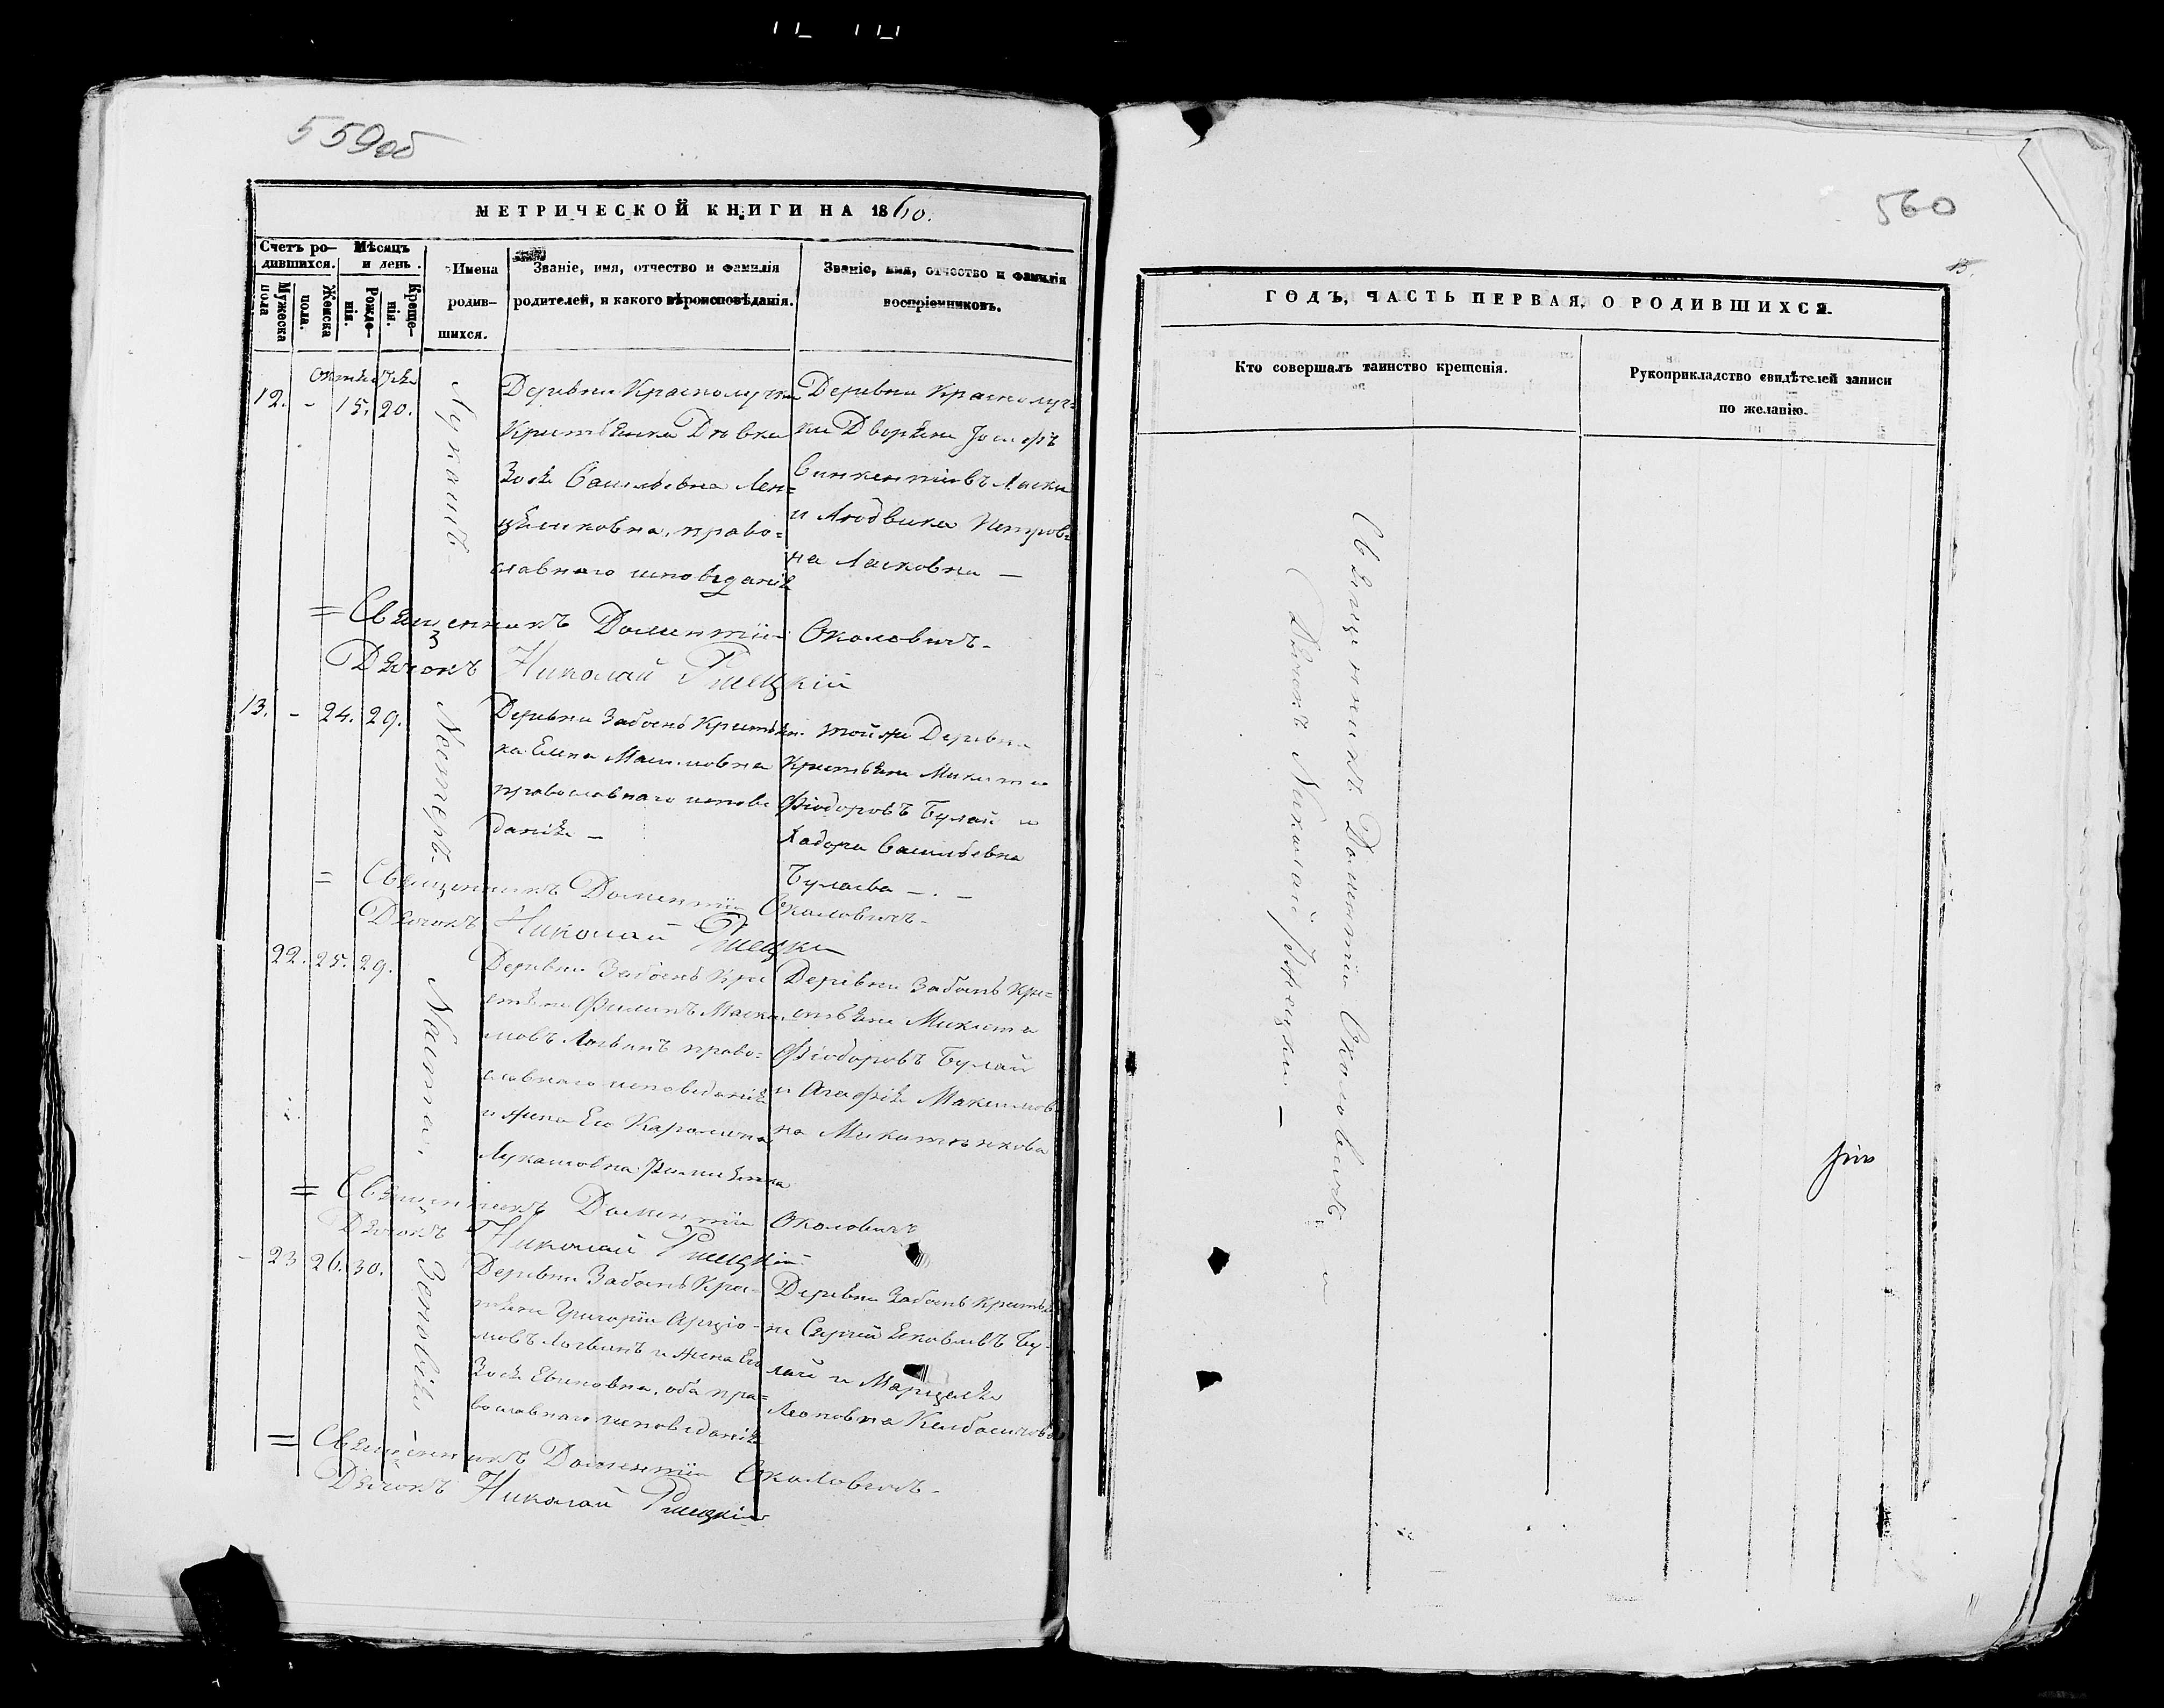 559 об
МЕТРИЧЕСКОЙ КНИГИ НА 1860.
Счетъ ро-
дившихся.
Мѣсяцъ
и день.
Мужеска
пола
Женска
пола.
Рожде-
нія.
Креще-
нія.
Имена
родив-
шихся.
Званіе, имя, отчество и фамилія
родителей, и какого вѣроисповѣданія.
Званіе, имя, отчество и фамилія
воспріемниковъ.
12. - 15. 20.
Лукашъ
Деревни Красполучки
Дѣвка
Зося Васильевна Лен=
право=
славнаго исповеданія
Деревни Красполуч=
ки Дворяне Іосифъ
Винкентіевъ Ласки
и Людвика Петров=
на Ласковна —
= Священникъ Доментій Околовичъ.
Дячокъ Николай Ржецкій
13. - 24. 29.
Несторъ.
Деревни Забоенъ Крестьян
ка Елена
православнаго испове
данія —
тойже Деревни
Крестьяне Микита
Фіодоровъ Булай и
Хадора Васильевна
Булаева —.—
= Священникъ Доментій Околовичъ.
Дячокъ Николай Ржецкій
22. 25. 29.
Настай
Деревни Забоенъ Кре
стьяне Филипъ Макси
мовъ Логвинъ право=
славнаго исповеданія
и жена Его Каролина
Лукашовна
Деревни Забоенъ Кре=
стьяне Микита
Фіодоровъ Булай
и Агафія Максимов
на Микитенкова
= Священникъ Доментій Околовичъ
Дячокъ Николай Ржецкій.
- 23 26. 30.
Зеновія
Деревни Забоенъ Кре-
стьяне Григорій Арціо-
мовъ Логвинъ и жена Его
Зося Евиновна, оба пра=
вославнаго исповеданія
Деревни Забоенъ Крестья
не Сергій Яковлевъ Бу-
лай и Марцеля
Леоновна
= Священникъ Доментій Околовичъ.
Дячокъ Николай Ржецкій
560
15.
ГОДЪ, ЧАСТЬ ПЕРВАЯ, О РОДИВШИХСЯ.
Кто совершалъ таинство крещенія.
Рукоприкладство свидѣтелей записи
по желанію.
Священникъ Доментій Околовичъ и
Дячокъ Николай Ржецкій. —